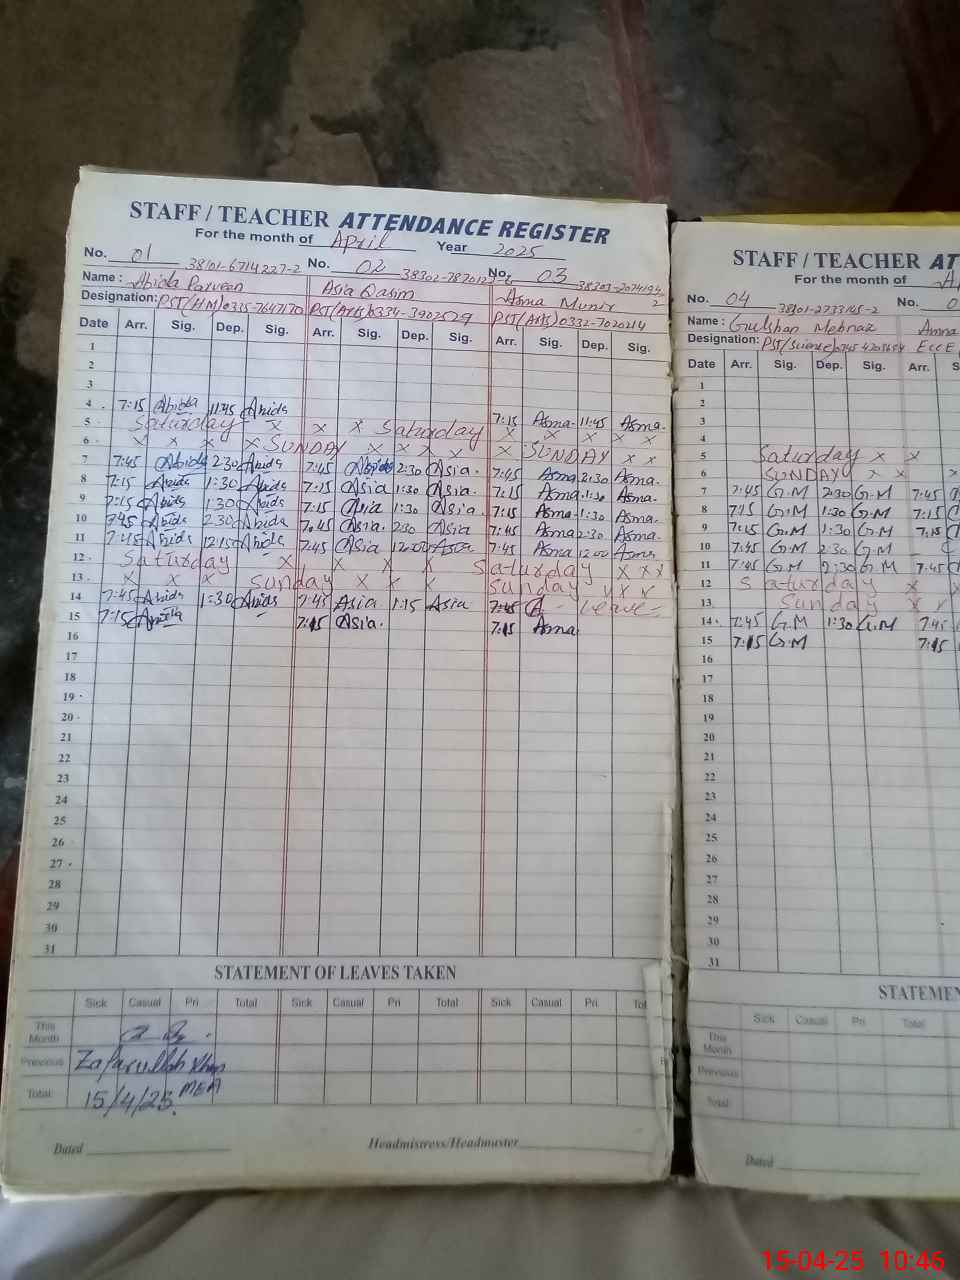 STAFF / TEACHER ATTENDANCE REGISTER
For the month of April Year 2025
No. 01 38101-6714227-2 No. 02 No. 03
Name : Abida Parveen Asia Qasim Asma Munir
Designation: PST(HM) PST(Arts) 0334-3902529 PST(Arts) 0332-7020214
Date Arr. Sig. Dep. Sig. Arr. Sig. Dep. Sig. Arr. Sig. Dep. Sig.
1
2
3
4 7:15 Abida 11:45 Abida 7:15 Asma 11:45 Asma
5 Saturday x x x Saturday x x x x
6 x x x x SUNDAY x x x x SUNDAY x x
7 7:45 Abida 2:30 Abida 7:45 2:30 Asia 7:45 Asma 2:30 Asma
8 7:15 Abida 1:30 Abida 7:15 Asia 1:30 Asia 7:15 Asma 1:30 Asma
9 7:15 Abida 1:30 Abida 7:15 Asia 1:30 Asia 7:15 Asma 1:30 Asma
10 7:45 Abida 2:30 Abida 7:45 Asia 2:30 Asia 7:45 Asma 2:30 Asma
11 7:45 Abida 12:15 Abida 7:45 Asia 12:00 Asia 7:45 Asma 12:00 Asma
12 Saturday x x x x Saturday x x x
13 x x x Sunday x x x Sunday x x x
14 7:45 Abida 1:30 Abida 7:45 Asia 1:15 Asia Leave
15 7:15 Abida 7:15 Asia 7:15 Asma
16
17
18
19
20
21
22
23
24
25
26
27
28
29
30
31
STATEMENT OF LEAVES TAKEN
Sick Casual Pri Total Sick Casual Pri Total Sick Casual Pri. Tot
This Month
Previous Zafarullah Khan
Total 15/4/25. MEA
Dated Headmistress/Headmaster
STAFF / TEACHER AT
For the month of A
No. 04 38101-2733145-2 No. 0
Name : Gulshan Mehnaz Amna
Designation: PST(Science) ECCE
Date Arr. Sig. Dep. Sig. Arr. S
1
2
3
4
5 Saturday x x
6 SUNDAY x x x
7 7:45 G.M 2:30 G.M 7:45
8 7:15 G.M 1:30 G.M 7:15
9 7:15 G.M 1:30 G.M 7:15
10 7:45 G.M 2:30 G.M
11 7:45 G.M 2:30 G.M 7:45
12 Saturday x x
13 Sunday x x
14 7:45 G.M 1:30 G.M 7:45
15 7:15 G.M 7:15
16
17
18
19
20
21
22
23
24
25
26
27
28
29
30
31
STATEMEN
Sick Casual Pri Total Sick
This Month
Previous
Total
Dated
15-04-25 10:46